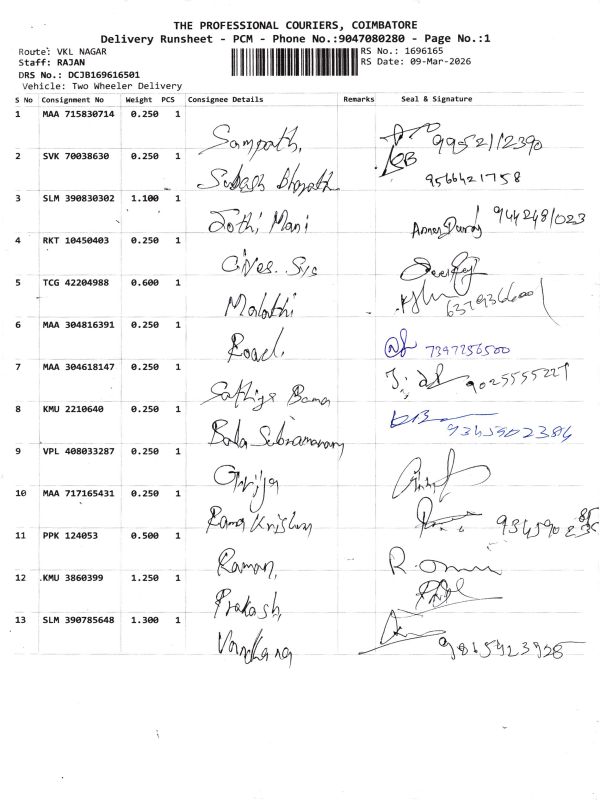 THE PROFESSIONAL COURIERS, COIMBATORE
Delivery Runsheet - PCM - Phone No.:9047080280 - Page No.:1
Route: VKL NAGAR RS No.: 1696165
Staff: RAJAN RS Date: 09-Mar-2026
DRS No.: DCJB169616501
Vehicle: Two Wheeler Delivery
S No Consignment No Weight PCS Consignee Details Remarks Seal & Signature
1 MAA 715830714 0.250 1 Sampath, 9952112390
2 SVK 70038630 0.250 1 Subash Bharath 9566421758
3 SLM 390830302 1.100 1 Jothi Mani 9442481023
4 RKT 10450403 0.250 1
5 TCG 42204988 0.600 1 Malathi
6 MAA 304816391 0.250 1 Road, 7397256500
7 MAA 304618147 0.250 1 Sathiya Bama 9025555221
8 KMU 2210640 0.250 1 Bala Subramaniam 9345902384
9 VPL 408033287 0.250 1 Girija
10 MAA 717165431 0.250 1 Rama Krishna
11 PPK 124053 0.500 1 Raman,
12 .KMU 3860399 1.250 1 Prakash,
13 SLM 390785648 1.300 1 9815923928